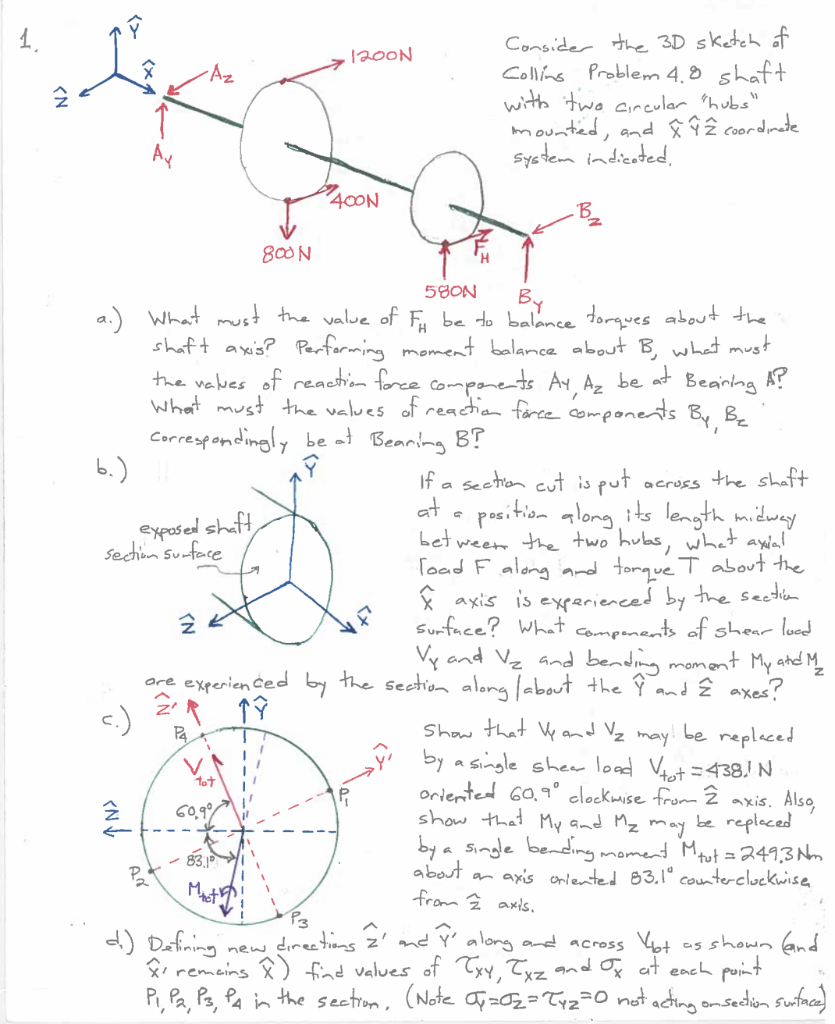 1.
Ŷ
X̂
Ẑ
Az
Ay
1200N
400N
800N
FH
580N
Bz
By
Consider the 3D sketch of
Collins Problem 4.8 shaft
with two circular "hubs"
mounted, and X̂ Ŷ Ẑ coordinate
system indicated.
a.) What must the value of FH be to balance torques about the
shaft axis? Performing moment balance about B, what must
the values of reaction force components Ay, Az be at Bearing A?
What must the values of reaction force components By, Bz
correspondingly be at Bearing B?
b.)
Ŷ
exposed shaft
section surface
Ẑ
X̂
If a section cut is put across the shaft
at a position along its length midway
between the two hubs, what axial
load F along and torque T about the
X̂ axis is experienced by the section
surface? What components of shear load
Vy and Vz and bending moment My and Mz
are experienced by the section along/about the Ŷ and Ẑ axes?
c.)
Ẑ'
Ŷ
P4
Ŷ'
Vtot
P1
Ẑ
60.9°
83.1°
P2
Mtot
P3
Show that Vy and Vz may be replaced
by a single shear load Vtot = 438.1 N
oriented 60.9° clockwise from Ẑ axis. Also,
show that My and Mz may be replaced
by a single bending moment Mtot = 249.3 Nm
about an axis oriented 83.1° counterclockwise
from Ẑ axis.
d.) Defining new directions Ẑ' and Ŷ' along and across Vtot as shown (and
X̂' remains X̂) find values of τxy, τxz and σx at each point
P1, P2, P3, P4 in the section. (Note σy=σz=τyz=0 not acting on section surface)